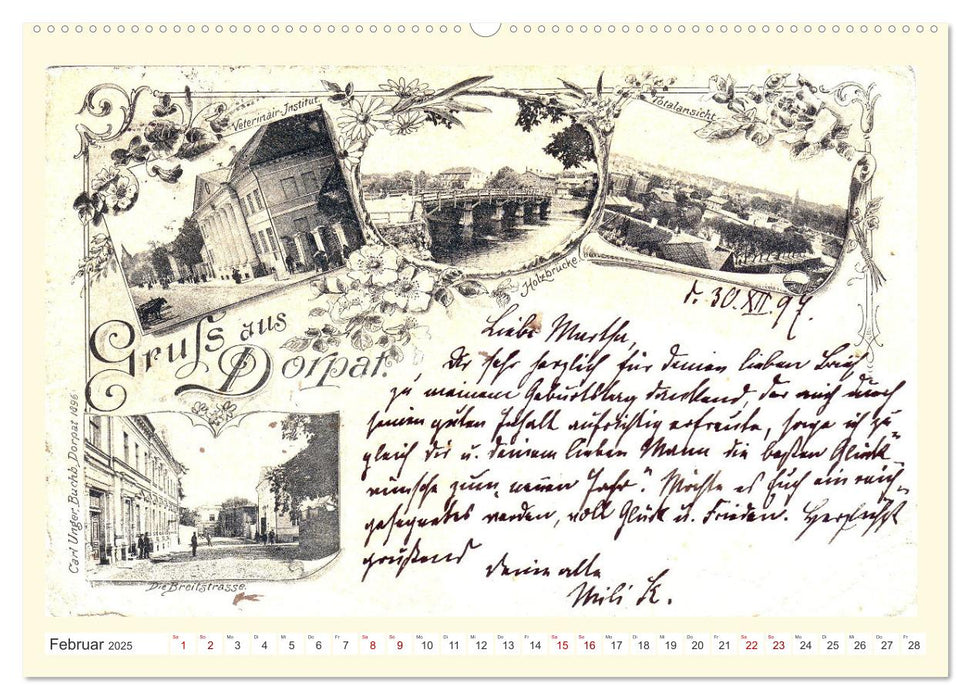 Veterinair-Institut.
Totalansicht.
Holzbrücke
Gruß aus
Dorpat.
Carl Unger, Buchh. Dorpat 1896.
Die Breitstrasse.
d. 30. XII. 97.
Liebe Martha,
Dir sehr herzlich für deinen lieben Brief
zu meinem Geburtstag dankend, der mich durch
seinen guten Inhalt aufrichtig erfreute, sage ich zu
gleich dir u. deinem lieben Mann die besten Glück
wünsche zum neuen Jahr". Möchte es Euch ein reich
gesegnetes werden, voll Glück u. Frieden. Herzlichst
grüßend
deine alte
Mili K.
Februar 2025
Sa So Mo Di Mi Do Fr Sa So Mo Di Mi Do Fr Sa So Mo Di Mi Do Fr Sa So Mo Di Mi Do Fr
1 2 3 4 5 6 7 8 9 10 11 12 13 14 15 16 17 18 19 20 21 22 23 24 25 26 27 28